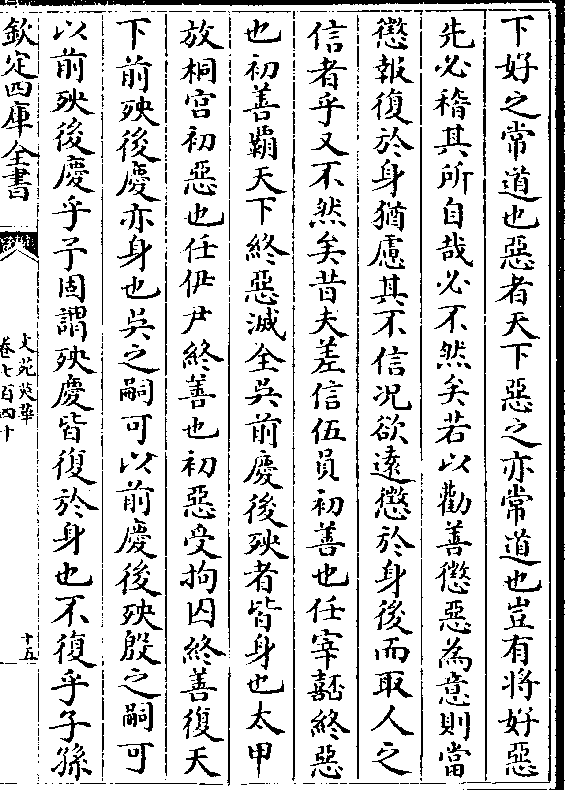 下好之常道也惡者天下惡之亦常道也豈有將好惡
先必稽其所自哉必不然矣若以勸善懲惡為意則當
懲報復於身猶慮其不信况欲遠懲於身後而取人之
信者乎又不然矣昔夫差信伍員初善也任宰嚭終惡
也初善霸天下終惡滅全吳前慶後殃者皆身也太甲
放桐宮初惡也任伊尹終善也初惡受拘囚終善復天
下前殃後慶亦身也吳之嗣可以前慶後殃殷之嗣可
以前殃後慶乎予固謂殃慶皆復於身也不復乎子孫
欽定四庫全書
文苑英華
卷七百四十
十五